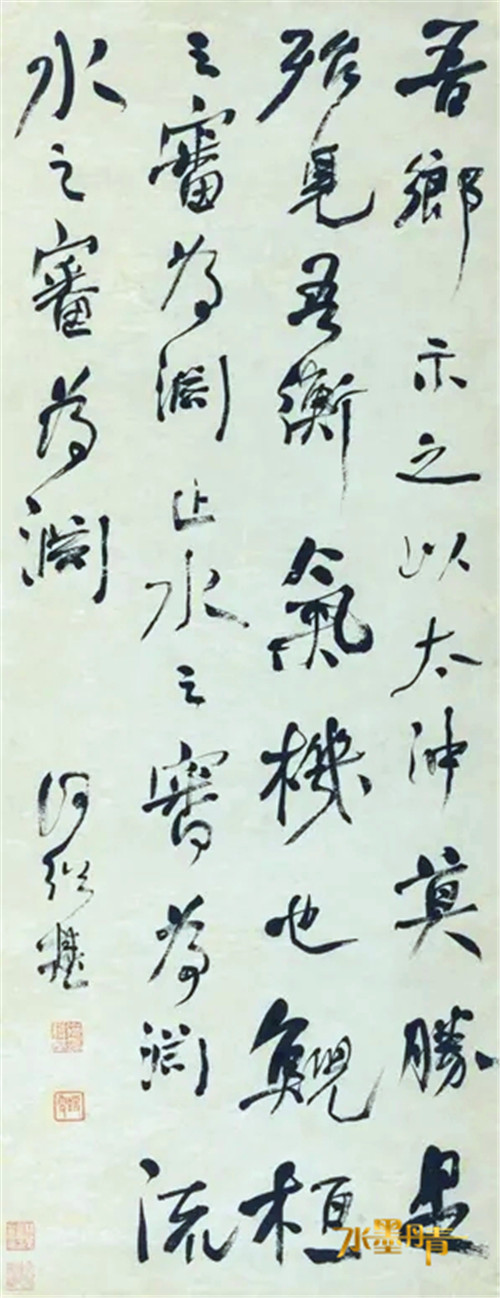 吾鄉示之以太沖莫勝是
殆見吾衡氣機也鯢桓
之審為淵止水之審為淵流
水之審為淵
何紹基
水墨丹青